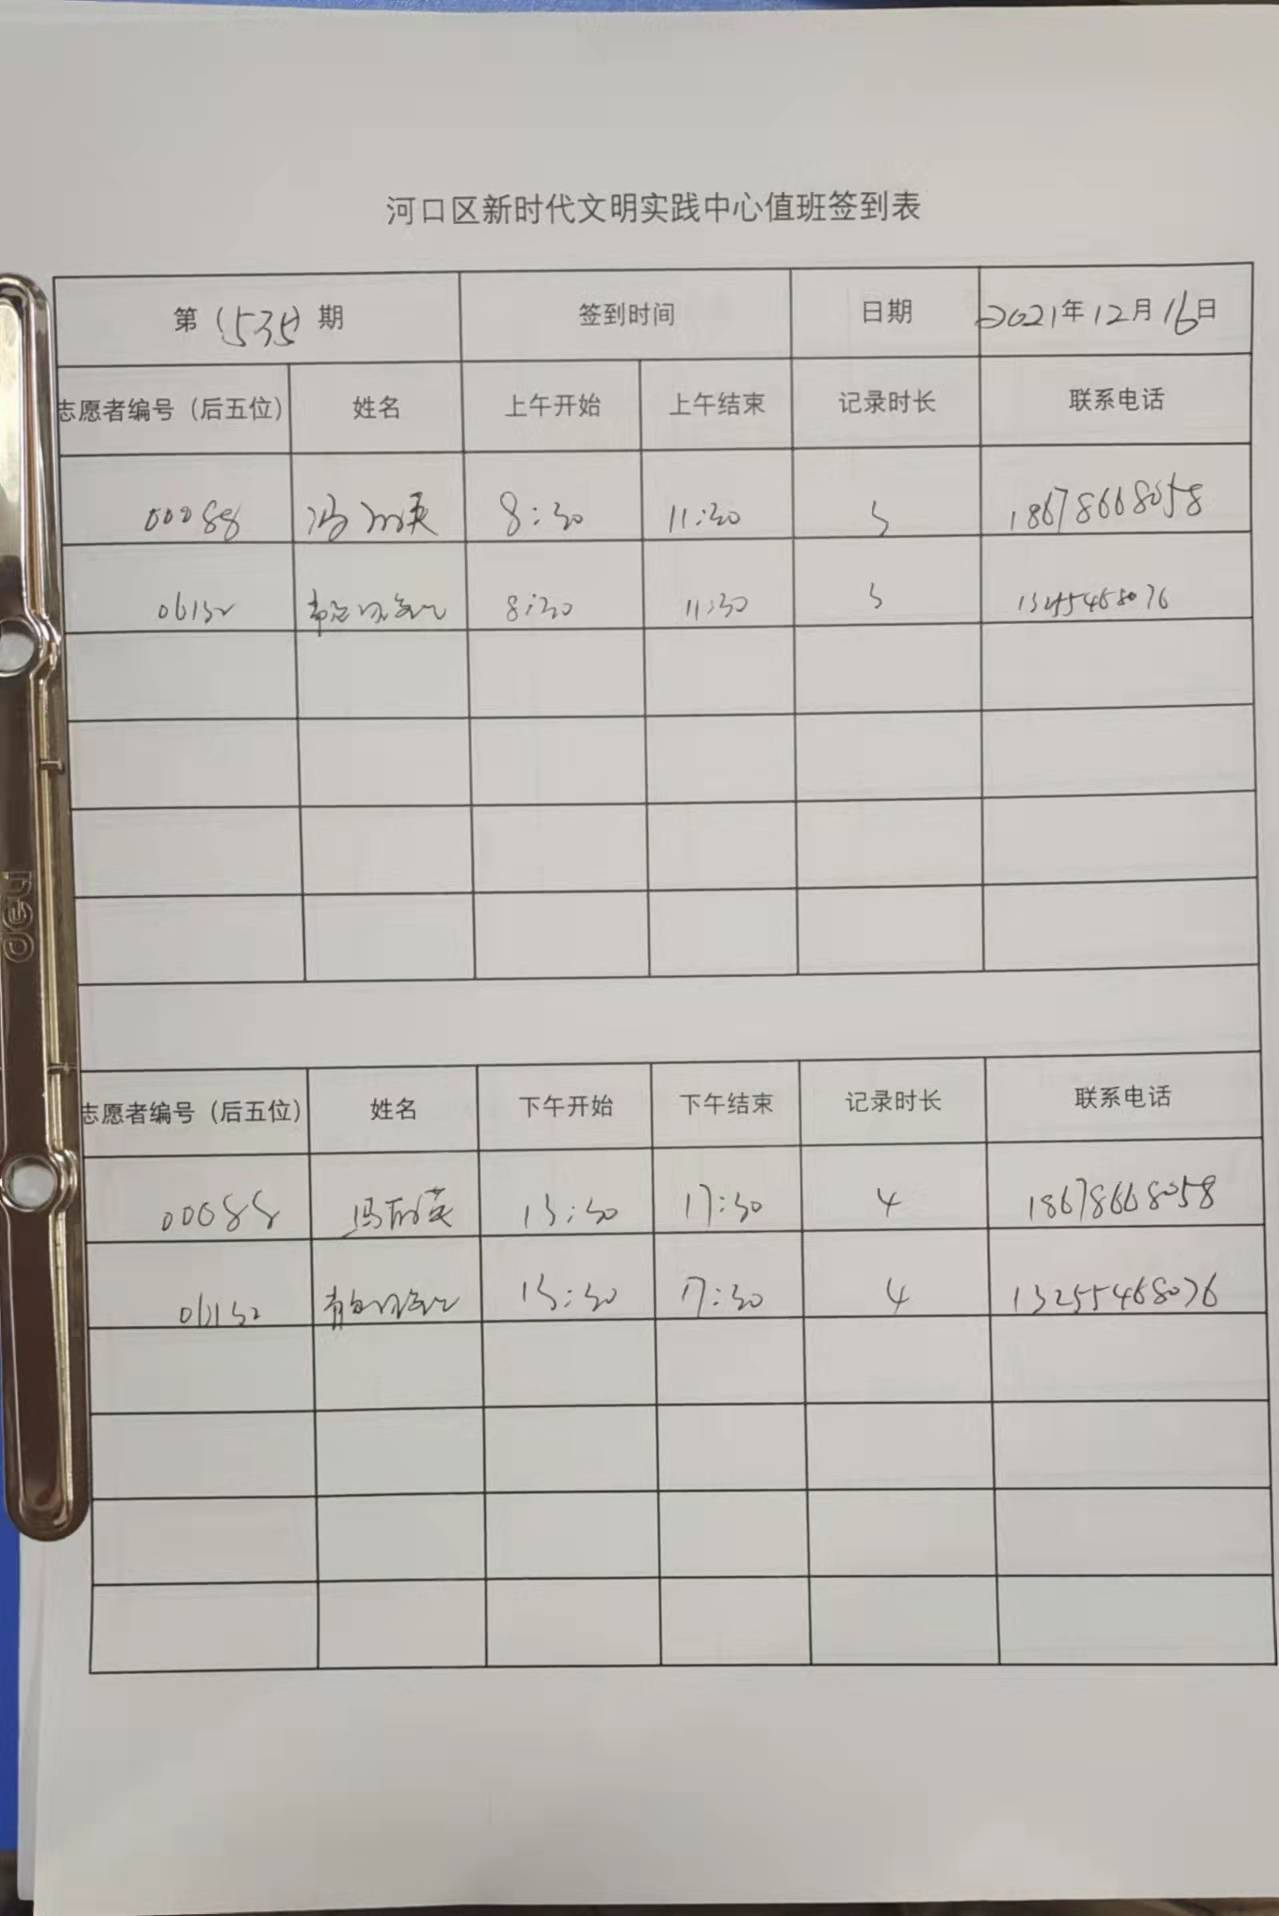 河口区新时代文明实践中心值班签到表
第(535)期 签到时间 日期 2021年12月16日
志愿者编号（后五位） 姓名 上午开始 上午结束 记录时长 联系电话
00088 冯 英 8:30 11:30 3 18678668058
06132 8:30 11:30 3 13255468076
志愿者编号（后五位） 姓名 下午开始 下午结束 记录时长 联系电话
00088 冯 英 13:30 17:30 4 18678668058
13:30 17:30 4 13255468076
deli